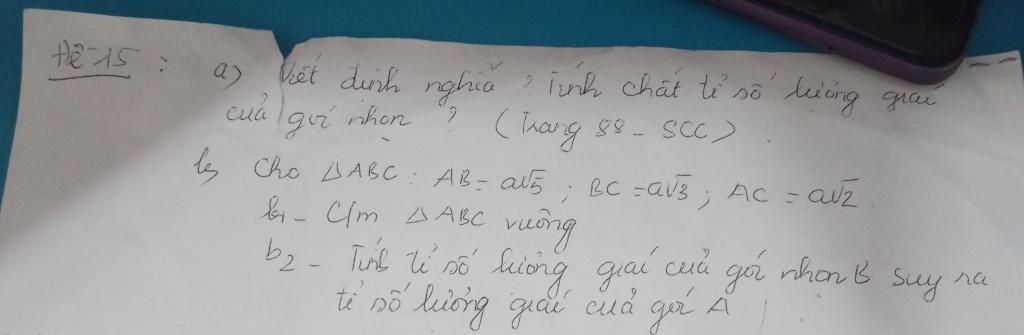 Đề 15 : a) Viết định nghĩa ? Tính chất tỉ số lượng giác
của góc nhọn ? (Trang 88 - SCC)
b, Cho △ABC : AB = a√5 ; BC = a√3 ; AC = a√2
b1 - C/m △ABC vuông
b2 - Tính tỉ số lượng giác của góc nhọn B suy ra
tỉ số lượng giác của góc A